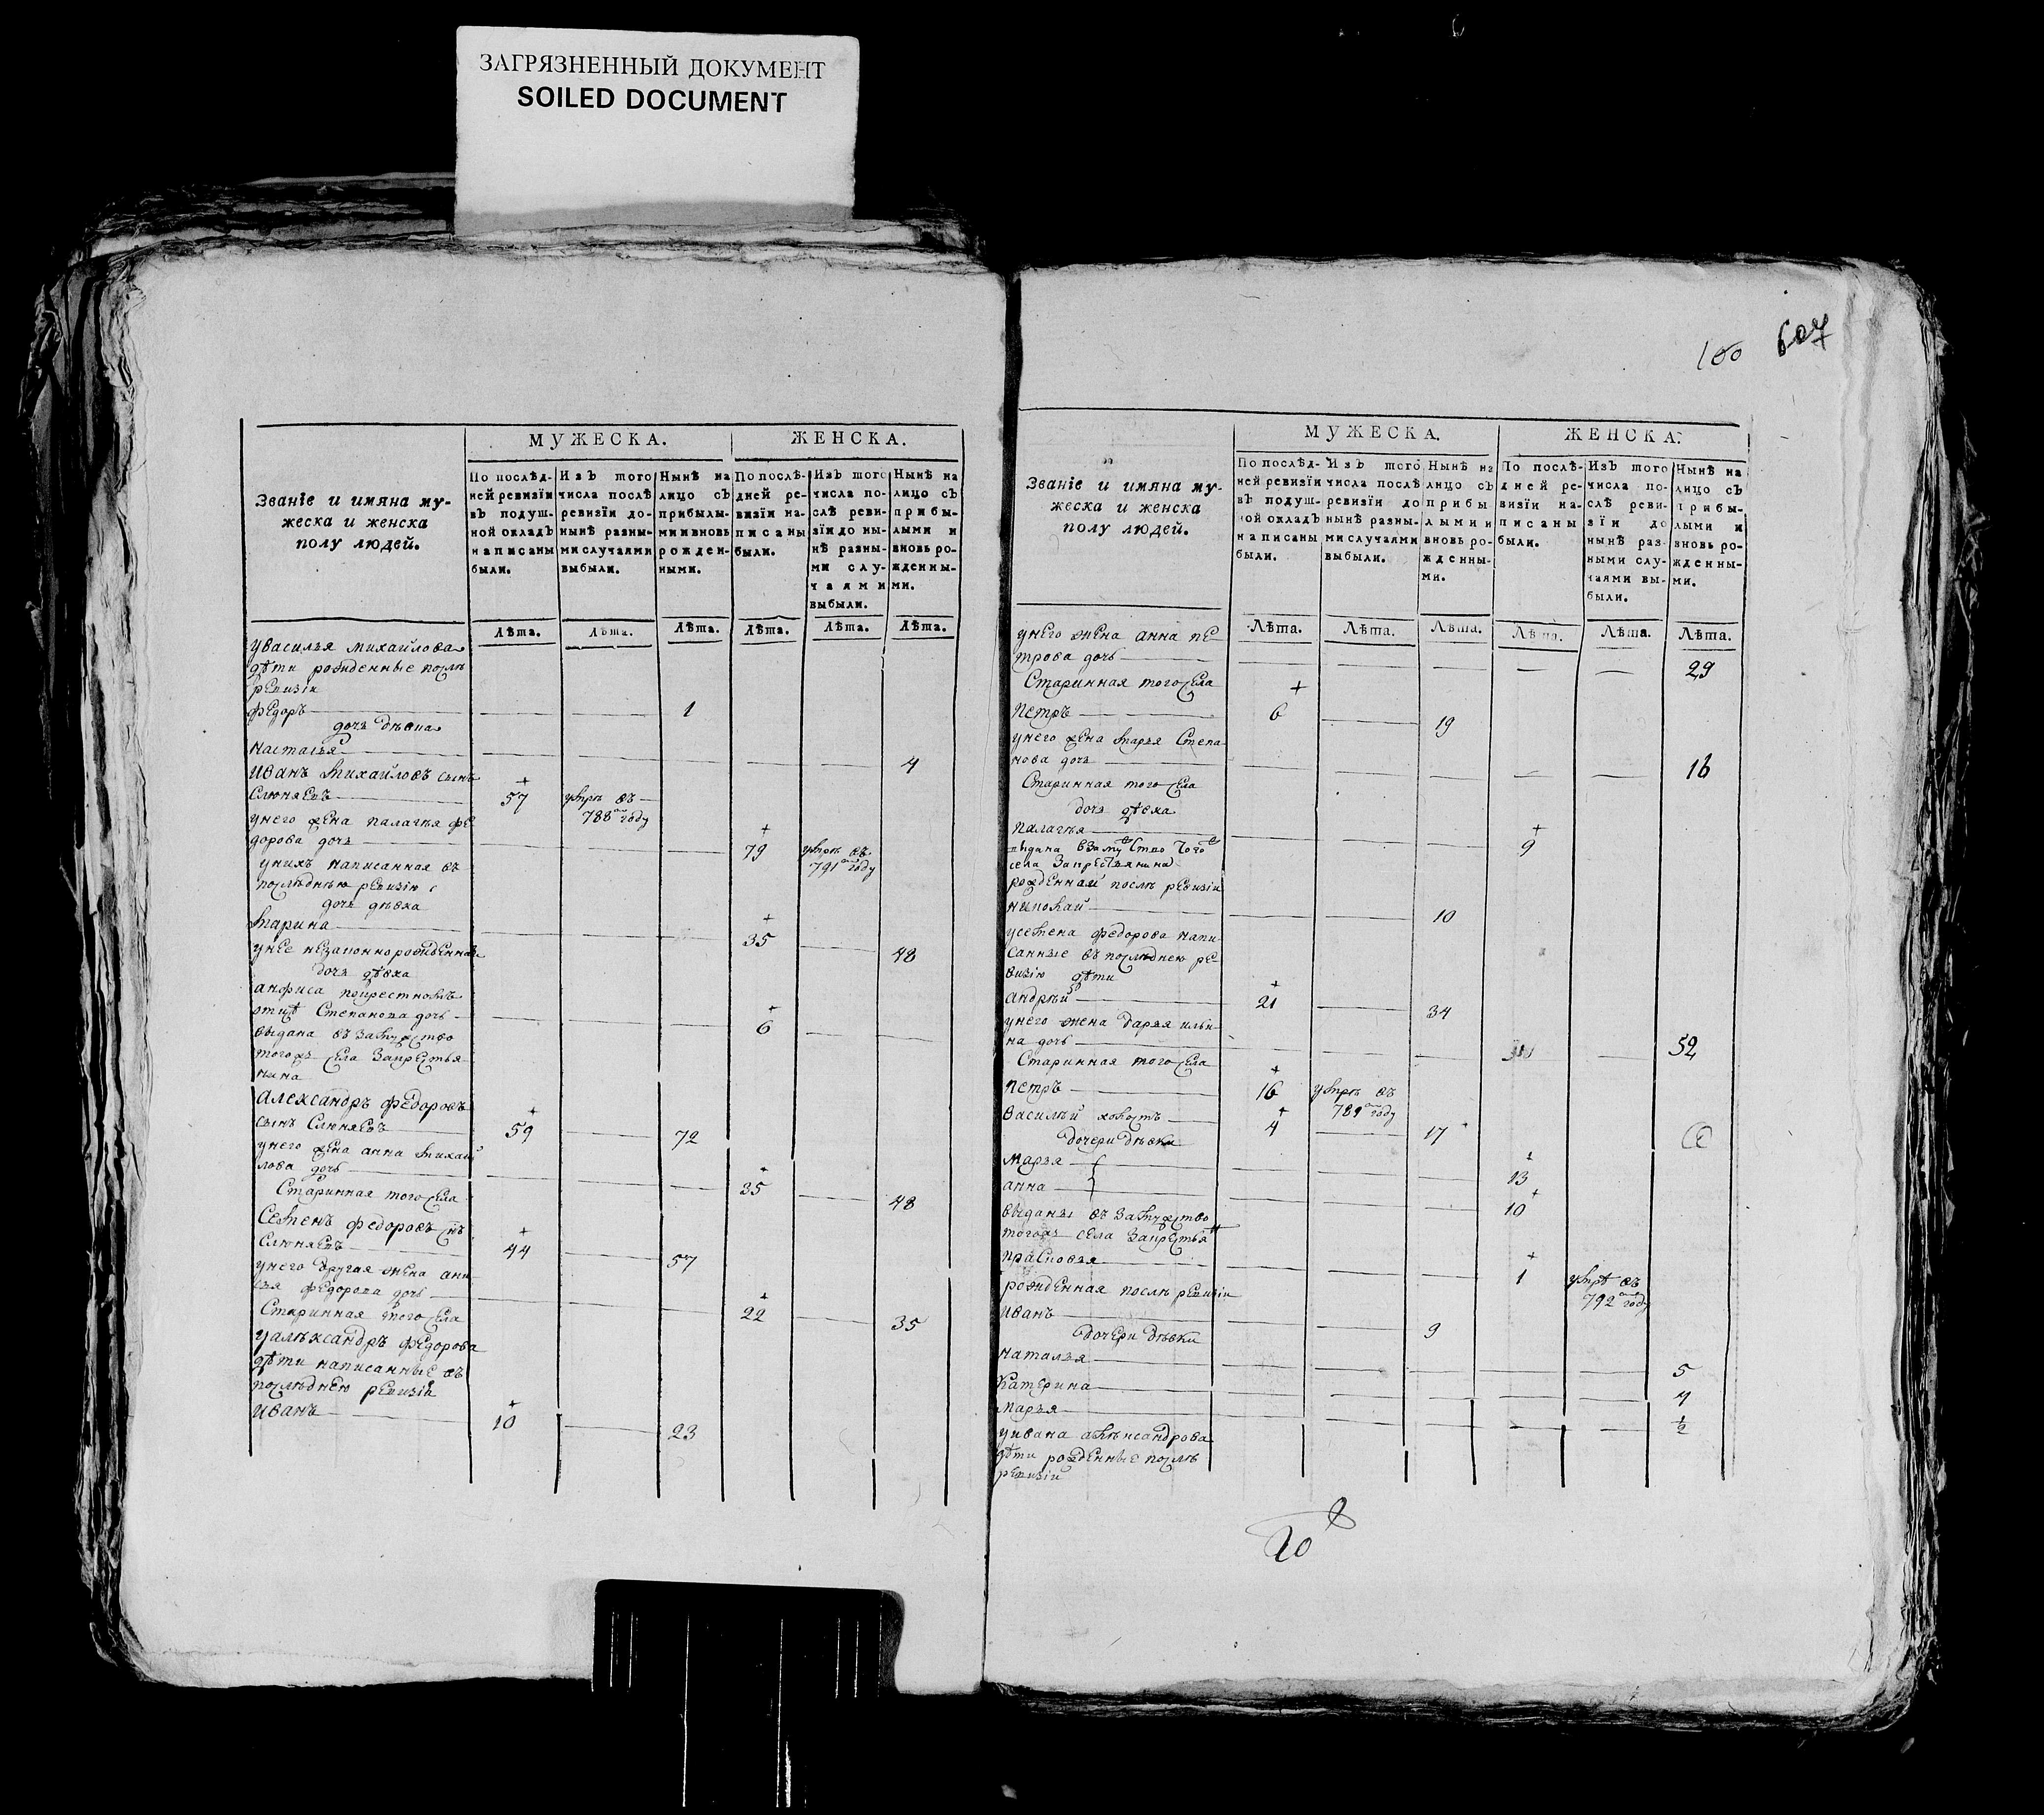 ЗАГРЯЗНЕННЫЙ ДОКУМЕНТ
SOILED DOCUMENT
МУЖЕСКА. ЖЕНСКА.
Званїе и имяна му-
жеска и женска
полу людей.
По послѣд-
ней ревизїи
въ подуш-
ной окладъ
написаны
были.
Изъ того
числа послѣ
ревизїи до-
нынѣ разны-
ми случаями
выбыли.
Нынѣ на
лицо съ
прибылы-
ми и вновь
рожден-
ными.
По послѣ-
дней ре-
визїи на-
писаны
были.
Изъ того
числа по-
слѣ реви-
зїи до ны-
нѣ разны-
ми слу-
чаями
выбыли.
Нынѣ на
лицо съ
прибы-
лыми и
вновь ро-
жденны-
ми.
Лѣта. Лѣта. Лѣта. Лѣта. Лѣта. Лѣта.
у василья михайлова
дѣти рожденные послѣ
ревизіи
федоръ 1
дочь дѣвка
настасья 4
иванъ михайловъ сынъ
Слюняевъ 57 умре въ
788 году
у него жена палагея фе
дорова дочь 79 умре въ
791 году
у нихъ написанная въ
последнюю ревизію
дочь дѣвка
марина 35 48
у нее незаконнорожденная
дочь дѣвка
анфиса по крестномъ
отцѣ Степанова дочь 6
выдана въ замужство
тогожъ села за крестья
нина
александръ федоровъ
сынъ Слюняевъ 59 72
у него жена анна михай
лова дочь 35 48
Старинная того села
Семенъ федоровъ снъ
Слюняевъ 44 57
у него другая жена
федорова дочь 22 35
Старинная того села
у александръ федорова
дѣти написанные въ
последнею ревизіи
иванъ 10 23
100 607
МУЖЕСКА. ЖЕНСКА.
Званїе и имяна му-
жеска и женска
полу людей.
По послѣд-
ней ревизїи
въ подуш-
ной окладъ
написаны
были.
Изъ того
числа послѣ
ревизїи до
нынѣ разны-
ми случаями
выбыли.
Нынѣ на
лицо съ
прибы
лыми и
вновь ро-
жденны-
ми.
По послѣ-
дней ре-
визїи на-
писаны
были.
Изъ того
числа по-
слѣ реви-
зїи до
нынѣ раз-
ными слу-
чаями вы-
были.
Нынѣ на
лицо съ
прибы-
лыми и
вновь ро-
жденны-
ми.
Лѣта. Лѣта. Лѣта. Лѣта. Лѣта. Лѣта.
у него жена анна пе
трова дочь 29
Старинная того села
петръ 6 19
у него жена марья Степа
нова дочь 16
Старинная того села
дочь дѣвка
палагея 9
выдана в замужство того
села за крестьянина
рожденный послѣ ревизіи
николай 10
у семена федорова напи
санные въ последнею ре
визію дѣти
андрѣй 21 34
у него жена дарья ильи
на дочь 52
Старинная того села
петръ 16 умре въ
789 году
василѣй холостъ 4 17
дочери дѣвки
марья 13
анна 10
выданы въ замужство
тогожъ села за крестьян
прасковья 1 умре въ
792 году
рожденная послѣ ревизіи
иванъ 9
дочери дѣвки
наталья 5
катерина 4
марья ½
у ивана александрова
дѣти рожденные послѣ
ревизіи